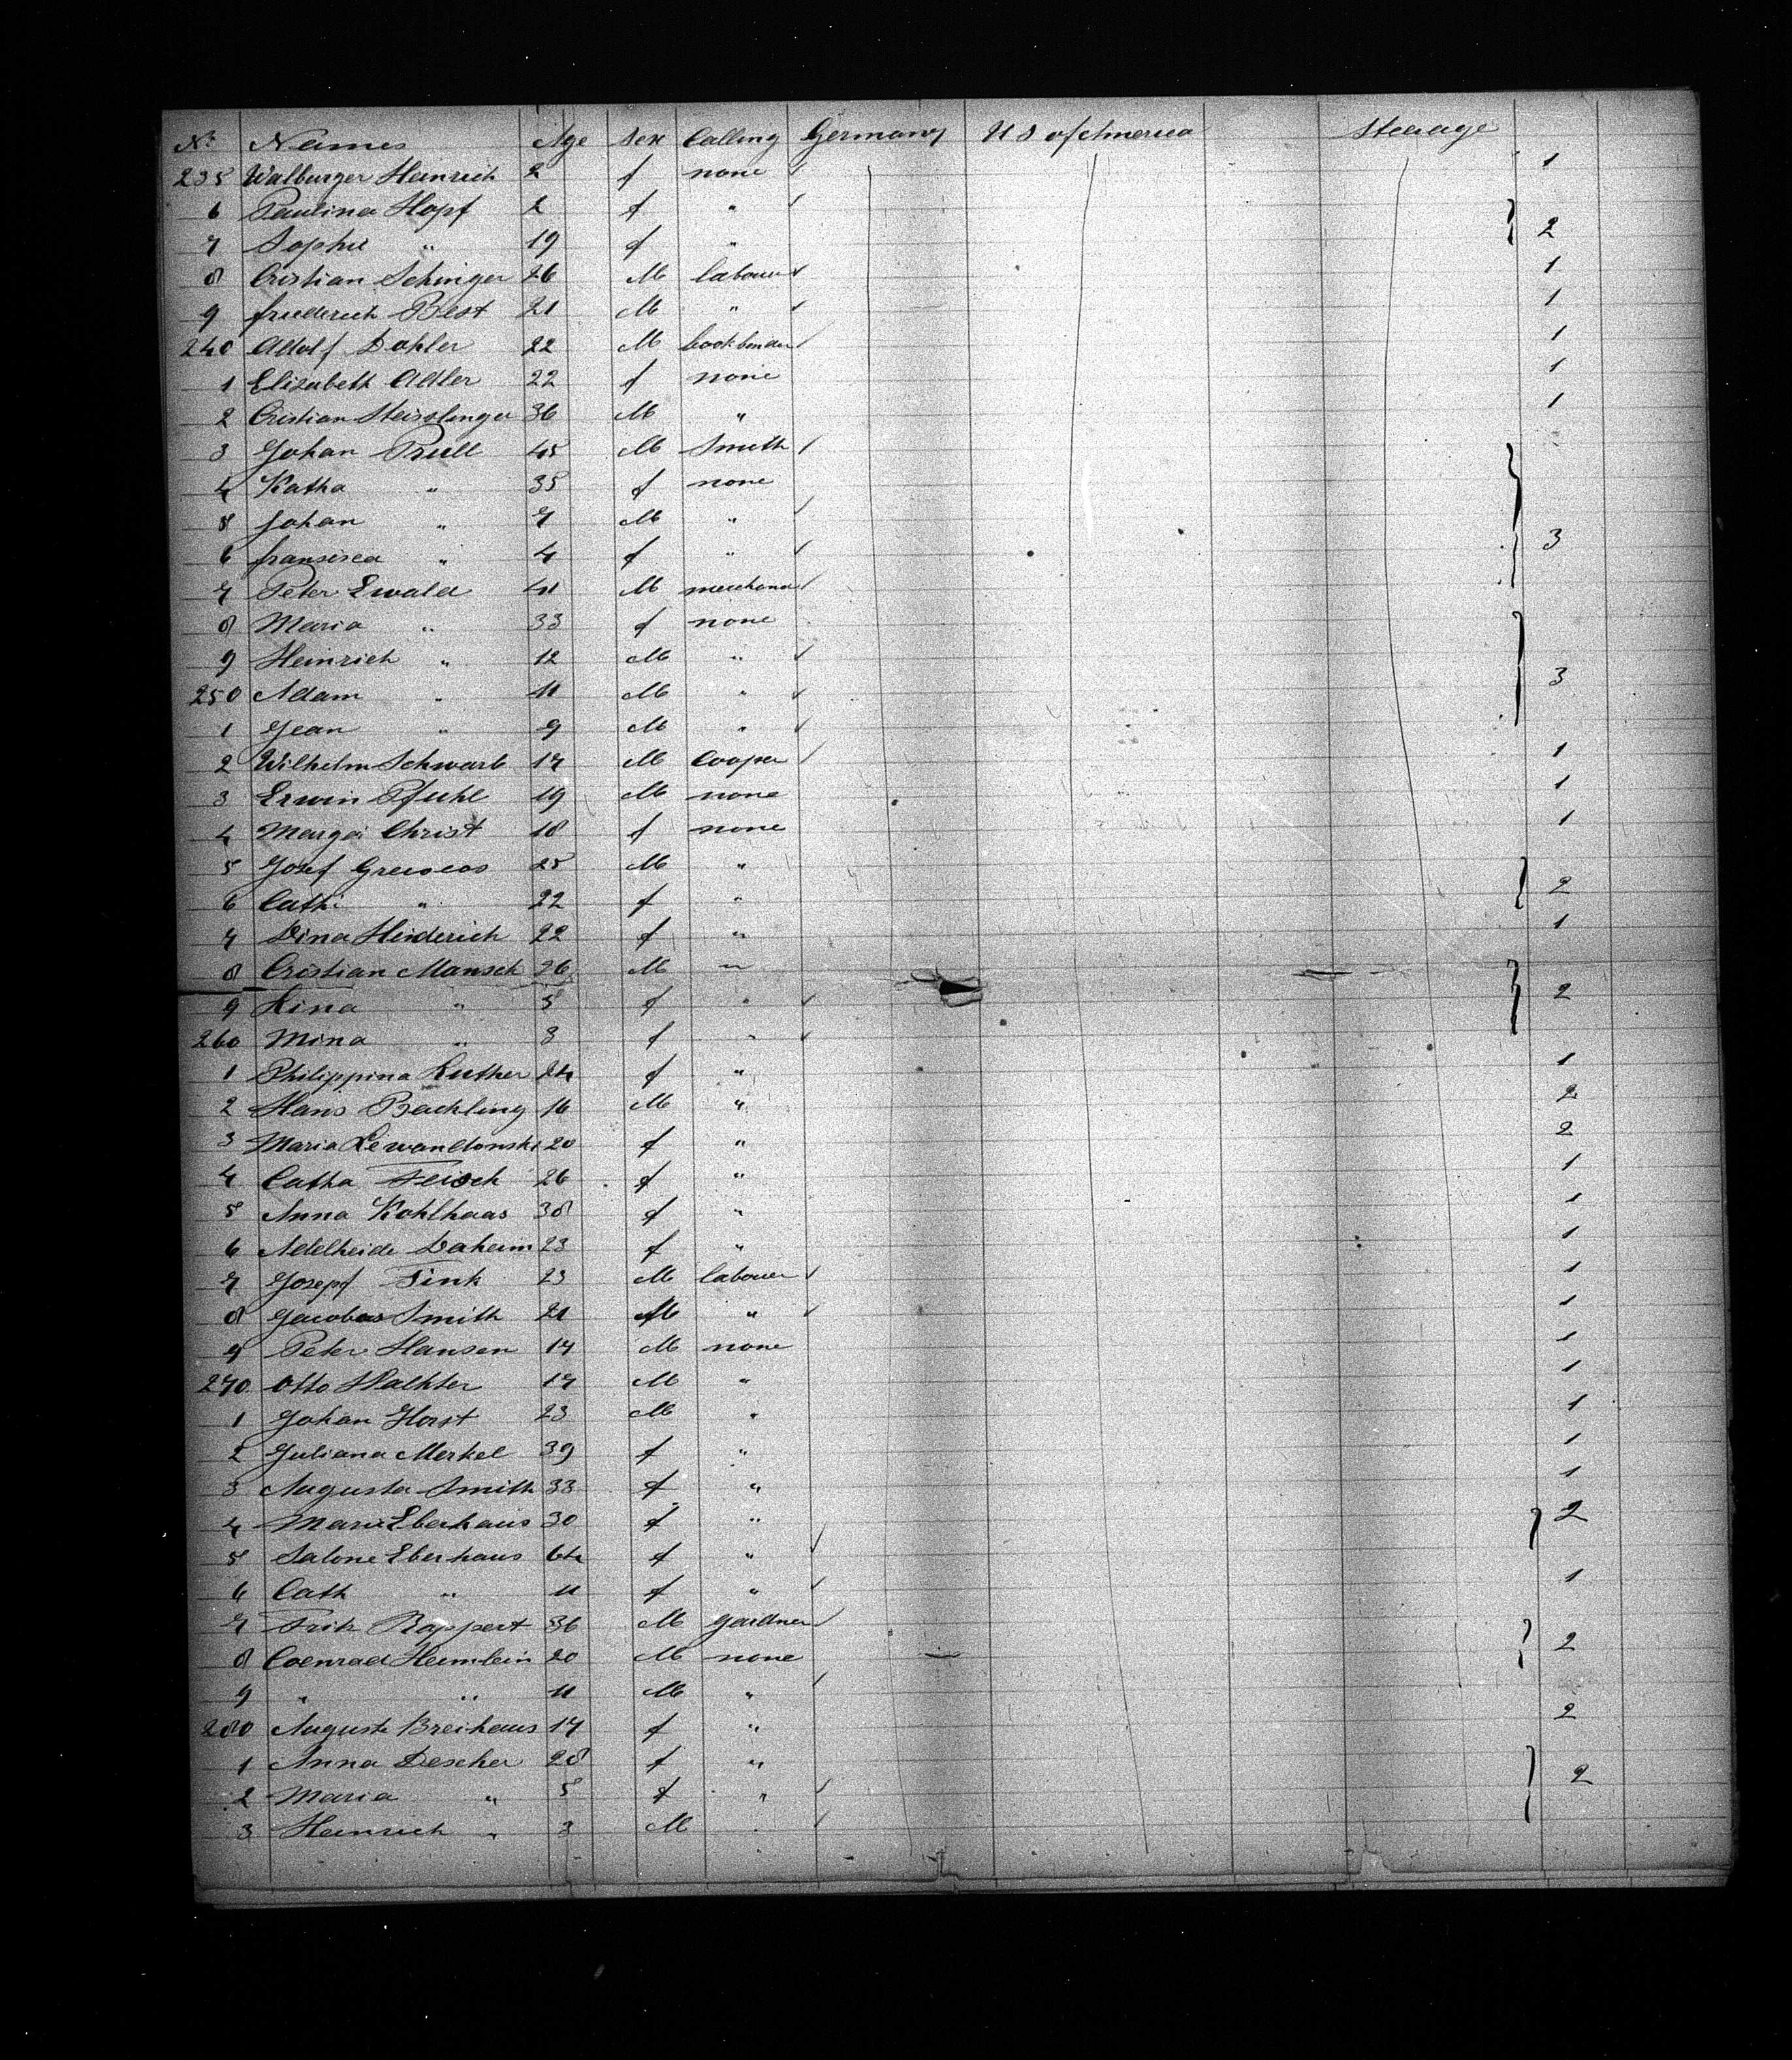 No Names Age Sex Calling Germany U S of America Steerage
235 Walburger Heinrich 2 f none 1
6 Paulina Hopf 2 f "
7 Sophie " 19 f " 2
8 Cristian Schinger 26 M labouer 1
9 friederich Best 21 M " 1
240 Adolf Dohler 22 M bookbinder 1
1 Elizabeth Adler 22 f none 1
2 Cristian 36 M " 1
3 Johan Prull 45 M Smith
4 Katha " 35 f none
5 Johan " 7 M "
6 fransisca " 4 f " 3
7 Peter Ewald 41 M merchand
8 Maria " 33 f none
9 Heinrich " 12 M "
250 Adam " 11 M " 3
1 Jean " 9 M "
2 Wilhelm Schwarb 17 M Cooper 1
3 Erwin Pfuhl 19 M none 1
4 Margar Christ 18 f none 1
5 Josef 25 M "
6 Cathi " 22 f " 2
7 Dina Heiderich 22 f " 1
8 Cristian Mansch 26 M "
9 Lina " 5 f " 2
260 Mina " 3 f "
1 Philippina Luther 24 f " 1
2 Hans Backling 16 M " 2
3 Maria Lewandonski 20 f " 2
4 Catha Feisch 26 f " 1
5 Anna Kohlhaas 38 f " 1
6 Adelheide Daheim 23 f " 1
7 Josepf Fink 23 M labouer 1
8 Jacobus Smith 21 M " 1
9 Peter Hansen 17 M none 1
270 Otto Walhter 17 M " 1
1 Johan Horst 23 M " 1
2 Juliana Merkel 39 f " 1
3 Augusta Smith 33 f " 1
4 Marie Eberhaus 30 f " 2
5 Salone Eberhaus 64 f "
6 Cath " 11 f " 1
7 Fritz Rappert 36 M gardner
8 Coenrad Heimlein 20 M none 2
9 " " 11 M "
280 Auguste Breihaus 17 f " 2
1 Anna Descher 28 f "
2 Maria " 5 f " 2
3 Heinrich " 3 M